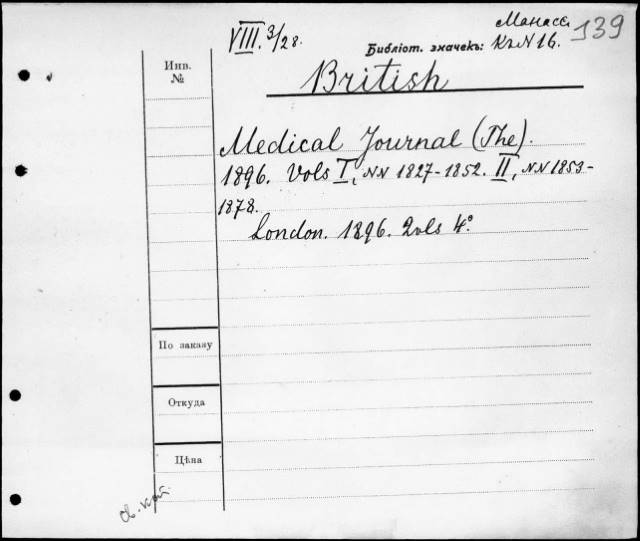 Манасс.
139
VIII. 3/28.
Библіот. значекъ: Кг N 16.
Инв.
№
British
Medical Journal (The).
1896. Vols I, NN 1827-1852. II, NN 1853-
1878.
London. 1896. 2 vols 4°.
По заказу
Откуда
Цѣна
кат.